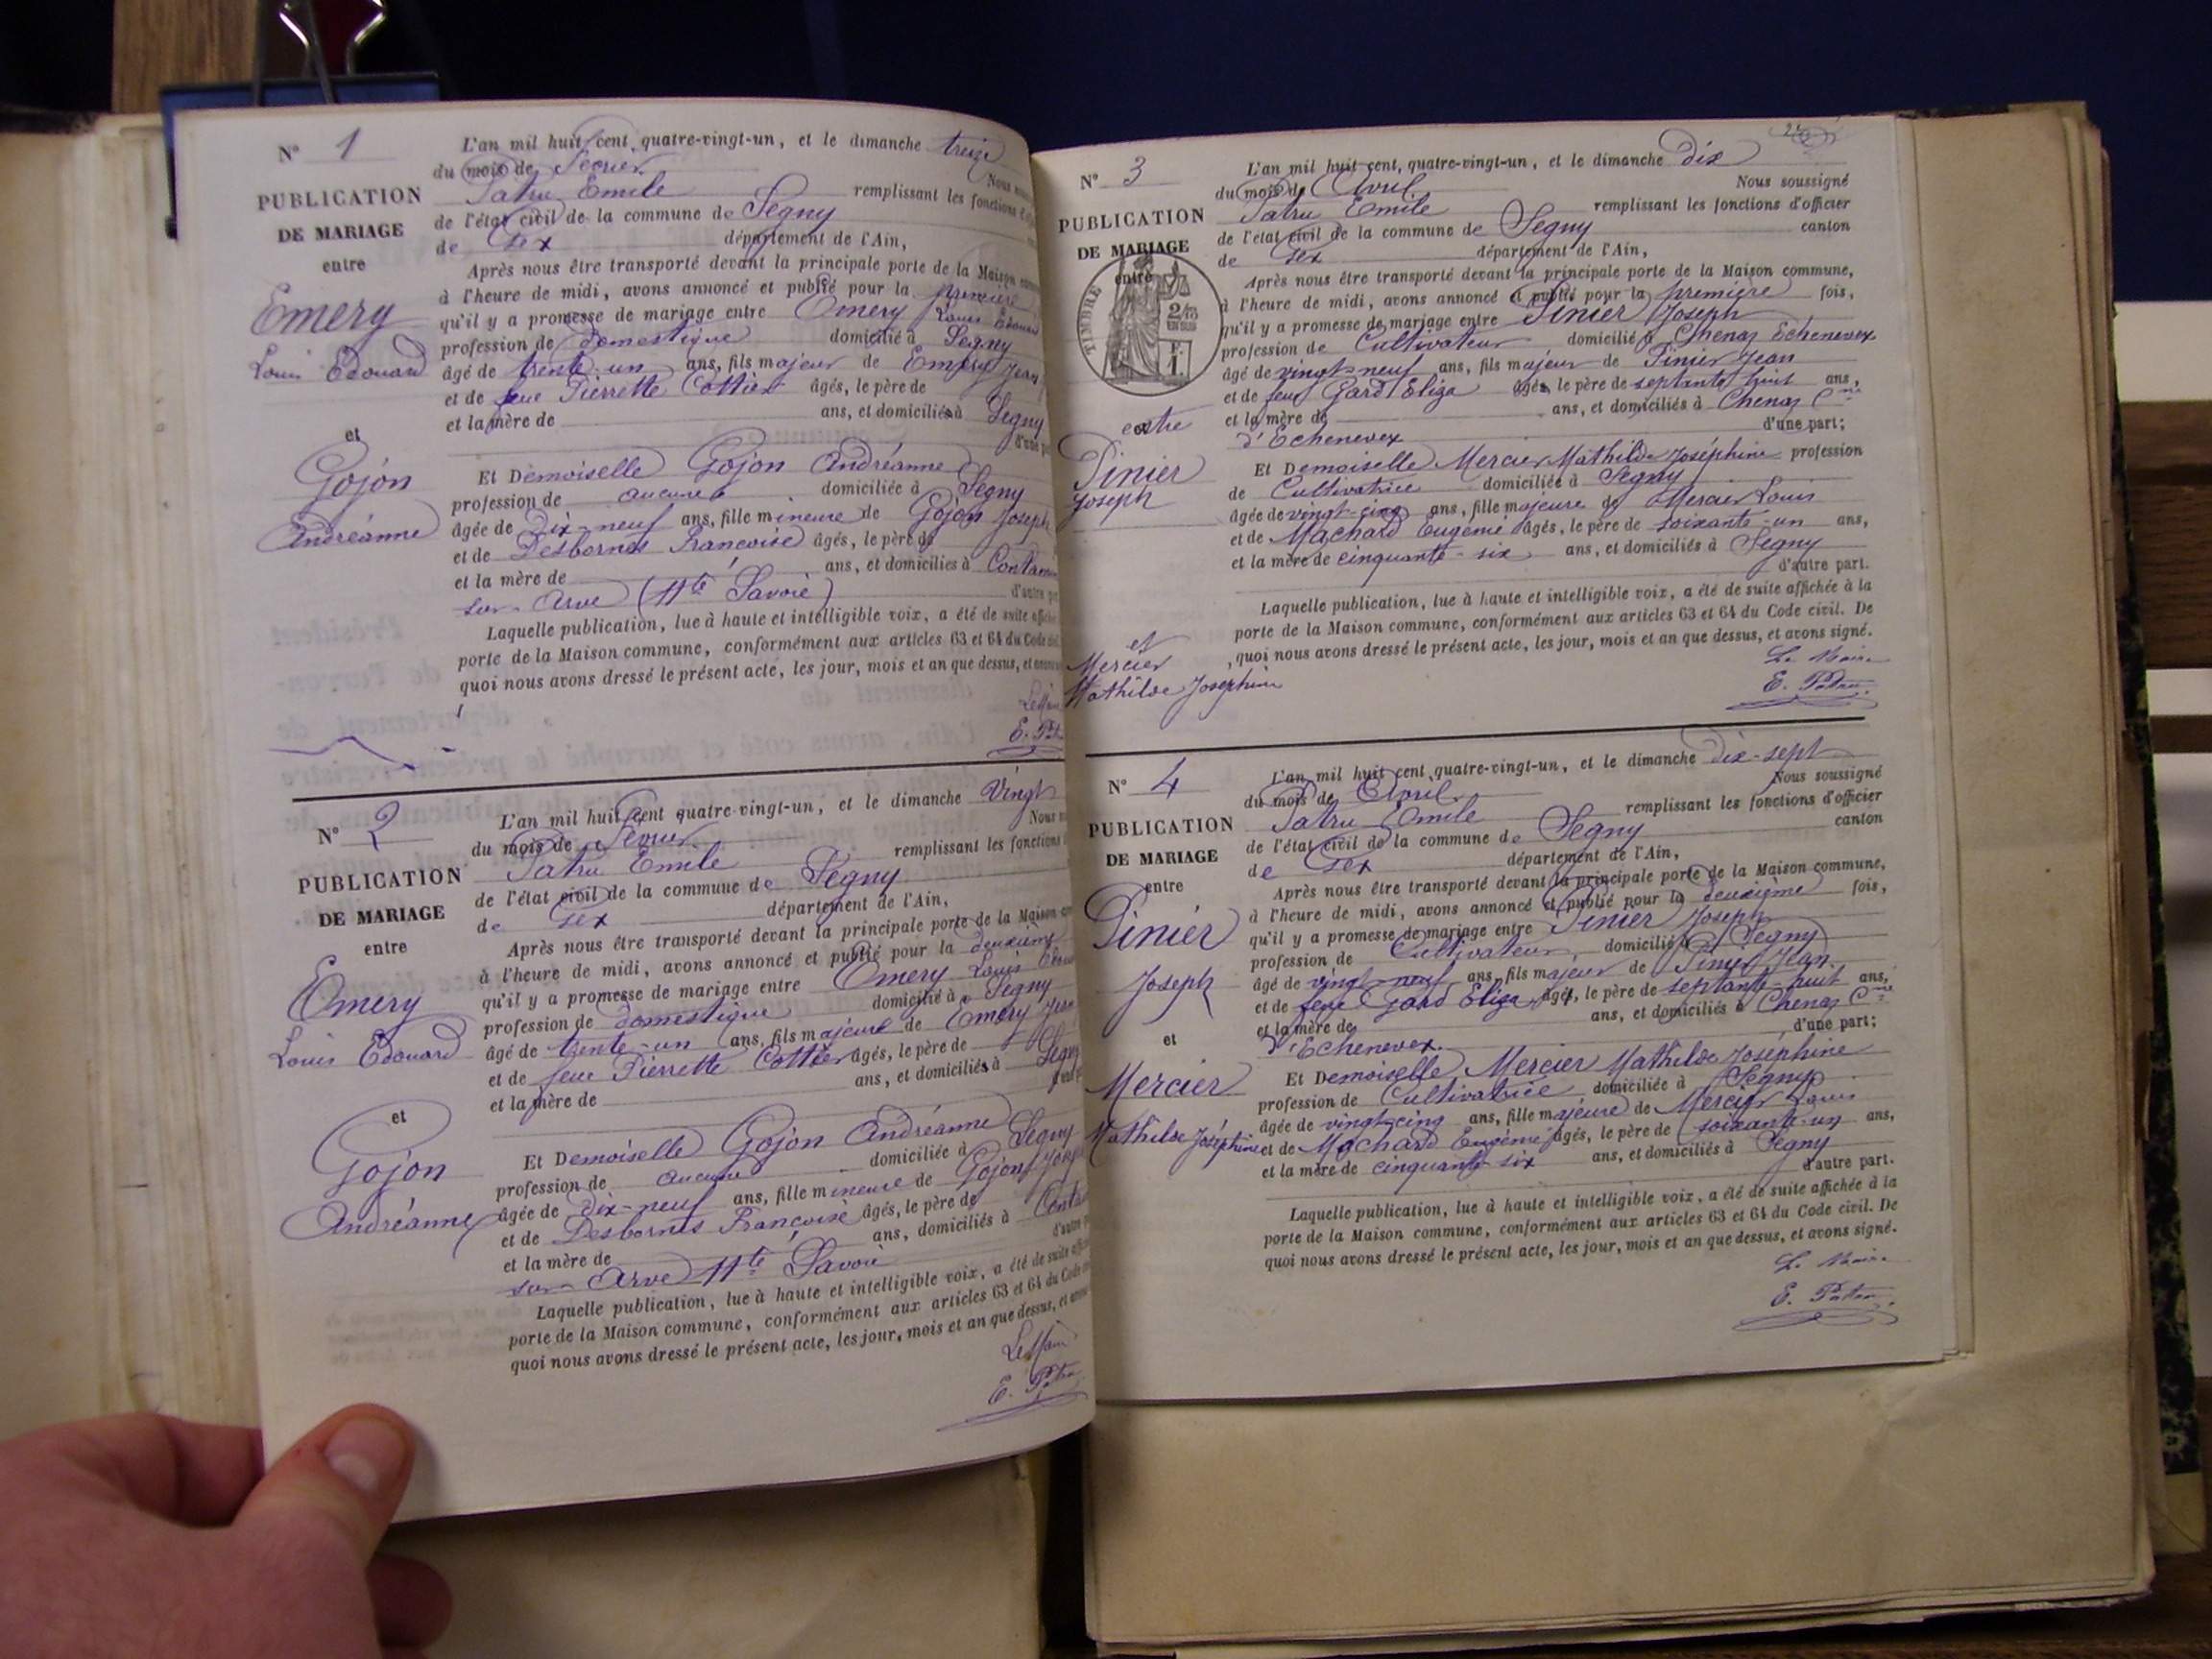 N° 1
PUBLICATION
DE MARIAGE
entre
Emery
Louis Edouard
et
Gojon
Andréanne
L'an mil huit cent quatre-vingt-un, et le dimanche treize
du mois de Février Nous
Patru Emile remplissant les fonctions
de l'état civil de la commune de Segny
de Gex département de l'Ain,
Après nous être transporté devant la principale porte de la Maison
à l'heure de midi, avons annoncé et publié pour la première
qu'il y a promesse de mariage entre Emery Louis Edouard
profession de domestique domicilié à Segny
âgé de trente-un ans, fils majeur de Emery Jean
et de feue Pierrette Cottier âgés, le père de
et la mère de ans, et domiciliés à Segny
d'une
Et Demoiselle Gojon Andréanne
profession de aucune domiciliée à Segny
âgée de Dix-neuf ans, fille mineure de Gojon Joseph
et de Desbornes Françoise âgés, le père de
et la mère de ans, et domiciliés à
sur Arve (Hte Savoie) d'autre
Laquelle publication, lue à haute et intelligible voix, a été de suite
porte de la Maison commune, conformément aux articles 63 et 64 du Code
quoi nous avons dressé le présent acte, les jour, mois et an que dessus, et
Le
E.
N° 2
PUBLICATION
DE MARIAGE
entre
Emery
Louis Edouard
et
Gojon
Andréanne
L'an mil huit cent quatre-vingt-un, et le dimanche Vingt
du mois de Février Nous
Patru Emile remplissant les fonctions
de l'état civil de la commune de Segny
de Gex département de l'Ain,
Après nous être transporté devant la principale porte de la Maison
à l'heure de midi, avons annoncé et publié pour la deuxième
qu'il y a promesse de mariage entre Emery Louis
profession de domestique domicilié à Segny
âgé de trente-un ans, fils majeur de Emery Jean
et de feue Pierrette Cottier âgés, le père de
et la mère de ans, et domiciliés à Segny
Et Demoiselle Gojon Andréanne
profession de aucune domiciliée à Segny
âgée de dix-neuf ans, fille mineure de Gojon
et de Desbornes Françoise âgés, le père de
et la mère de ans, domiciliés à
sur Arve Hte Savoie
Laquelle publication, lue à haute et intelligible voix, a été de suite
porte de la Maison commune, conformément aux articles 63 et 64 du Code
quoi nous avons dressé le présent acte, les jour, mois et an que dessus, et
Le Maire
E. Patru
N° 3
PUBLICATION
DE MARIAGE
entre
TIMBRE
entre
Pinier
Joseph
et
Mercier
Mathilde Joséphine
L'an mil huit cent, quatre-vingt-un, et le dimanche Dix
du mois de Avril Nous soussigné
Patru Emile remplissant les fonctions d'officier
de l'état civil de la commune de Segny canton
de Gex département de l'Ain,
Après nous être transporté devant la principale porte de la Maison commune,
à l'heure de midi, avons annoncé et publié pour la première fois,
qu'il y a promesse de mariage entre Pinier Joseph
profession de Cultivateur domicilié à Chenaz Echenevex
âgé de vingt-neuf ans, fils majeur de Pinier Jean
et de feue Gard Eliza âgés, le père de septante huit ans,
et la mère de ans, et domiciliés à Chenaz Cne
d'Echenevex d'une part;
Et Demoiselle Mercier Mathilde Joséphine profession
de Cultivatrice domiciliée à Segny
âgée de vingt-cinq ans, fille majeure de Mercier Louis
et de Machard Eugénie âgés, le père de soixante-un ans,
et la mère de cinquante-six ans, et domiciliés à Segny
d'autre part.
Laquelle publication, lue à haute et intelligible voix, a été de suite affichée à la
porte de la Maison commune, conformément aux articles 63 et 64 du Code civil. De
quoi nous avons dressé le présent acte, les jour, mois et an que dessus, et avons signé.
Le Maire
E. Patru
N° 4
PUBLICATION
DE MARIAGE
entre
Pinier
Joseph
et
Mercier
Mathilde Joséphine
L'an mil huit cent quatre-vingt-un, et le dimanche dix-sept
du mois de Avril Nous soussigné
Patru Emile remplissant les fonctions d'officier
de l'état civil de la commune de Segny canton
de Gex département de l'Ain,
Après nous être transporté devant la principale porte de la Maison commune,
à l'heure de midi, avons annoncé et publié pour la deuxième fois,
qu'il y a promesse de mariage entre Pinier Joseph
profession de Cultivateur domicilié à Segny
âgé de vingt-neuf ans, fils majeur de Pinier Jean
et de feue Gard Eliza âgés, le père de septante-huit ans,
et la mère de ans, et domiciliés à Chenaz Cne
d'Echenevex d'une part;
Et Demoiselle Mercier Mathilde Joséphine
profession de Cultivatrice domiciliée à Segny
âgée de vingt-cinq ans, fille majeure de Mercier Louis
et de Machard Eugénie âgés, le père de soixante-un ans,
et la mère de cinquante-six ans, et domiciliés à Segny
d'autre part.
Laquelle publication, lue à haute et intelligible voix, a été de suite affichée à la
porte de la Maison commune, conformément aux articles 63 et 64 du Code civil. De
quoi nous avons dressé le présent acte, les jour, mois et an que dessus, et avons signé.
Le Maire
E. Patru